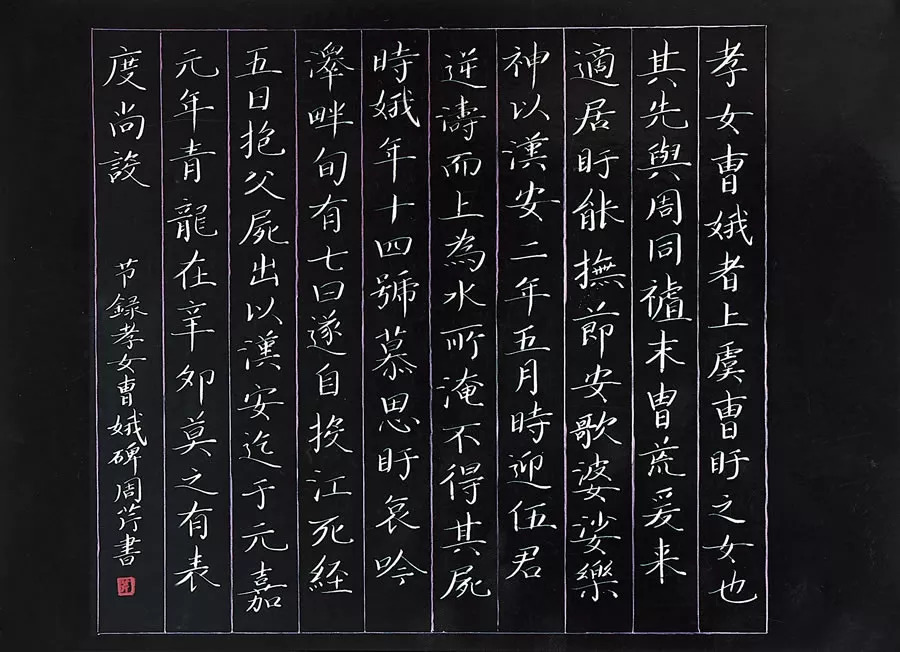 孝女曹娥者上虞曹盱之女也
其先與周同禮末胄荒爰来
適居盱能撫節安歌婆娑樂
神以漢安二年五月時迎伍君
逆濤而上為水所淹不得其屍
時娥年十四號慕思盱哀吟
澤畔旬有七日遂自投江死經
五日抱父屍出以漢安迄于元嘉
元年青龍在辛卯莫之有表
度尚設
节録孝女曹娥碑周芹書